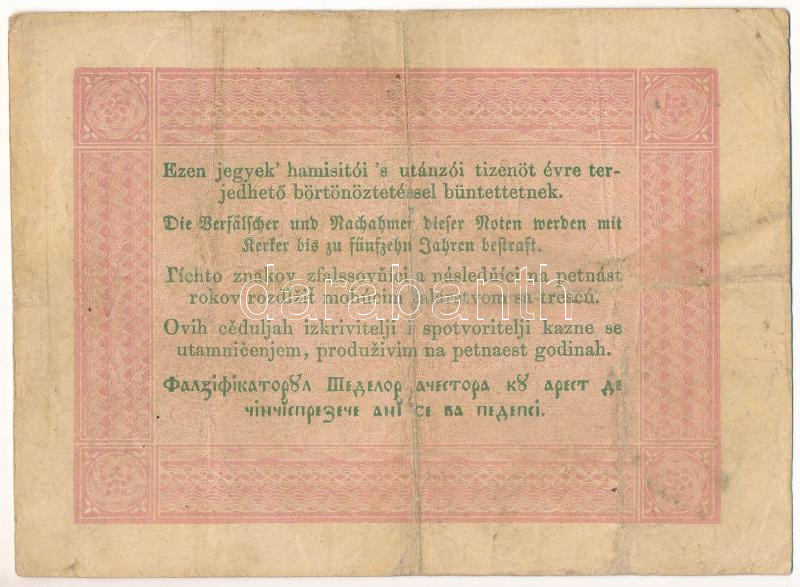 Ezen jegyek' hamisitói 's utánzói tizenöt évre ter-
jedhető börtönöztetéssel büntettetnek.
Die Verfälscher und Nachahmer dieser Noten werden mit
Kerker bis zu fünfzehn Jahren bestraft.
Tíchto znakov zfalssovňíci a následňíci na petnást
rokov rozďížiť mohúcim žalárstvom sa trescú.
Ovih cěduljah izkrivitelji i spotvoritelji kazne se
utamničenjem, produživim na petnaest godinah.
Фалꙁіфікаторꙋл Шеделор ачестора кꙋ арест де
чінчіспреꙁече анĭ се ва педепсі.
darabanth